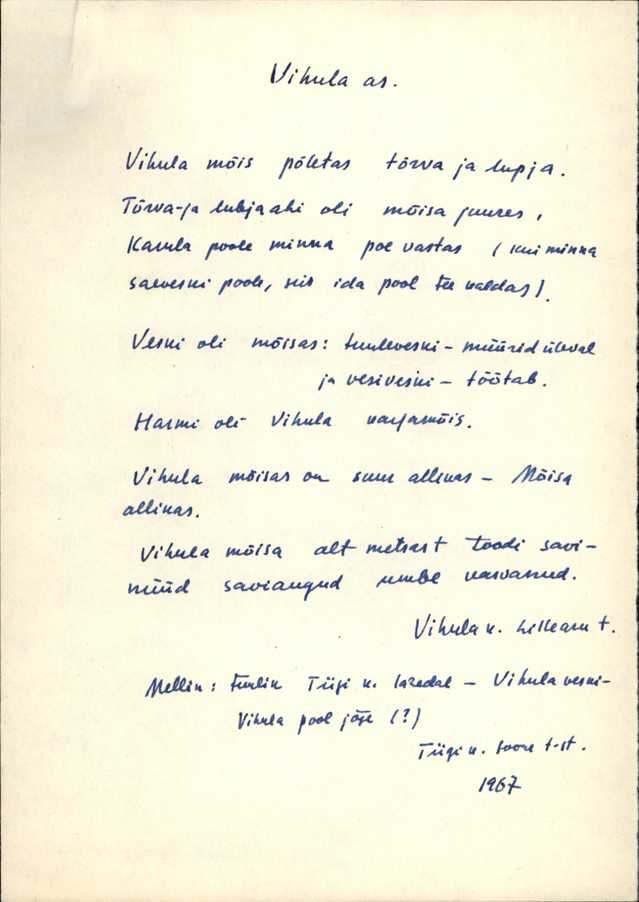 Vihula as.
Vihula mõis põletas tõrva ja lupja.
Tõrva- ja lubjaahi oli mõisa juures,
Karula poole minna poe vastas (kui minna
saeveski poole, siis ida pool tee kaldas).
Veski oli mõisas: tuuleveski – müürid üleval
ja vesiveski – töötab.
Harmi oli Vihula karjamõis.
Vihula mõisas on suur allikas – Mõisa
allikas.
Vihula mõisa alt metsast toodi savi –
nüüd saviaugud umbe kasvanud.
Vihula k. t.
Mellin: tuulik Tiigi k. lagedal – Vihula veski –
Vihula pool jõge (?)
Tiigi k. Soone t-st.
1967